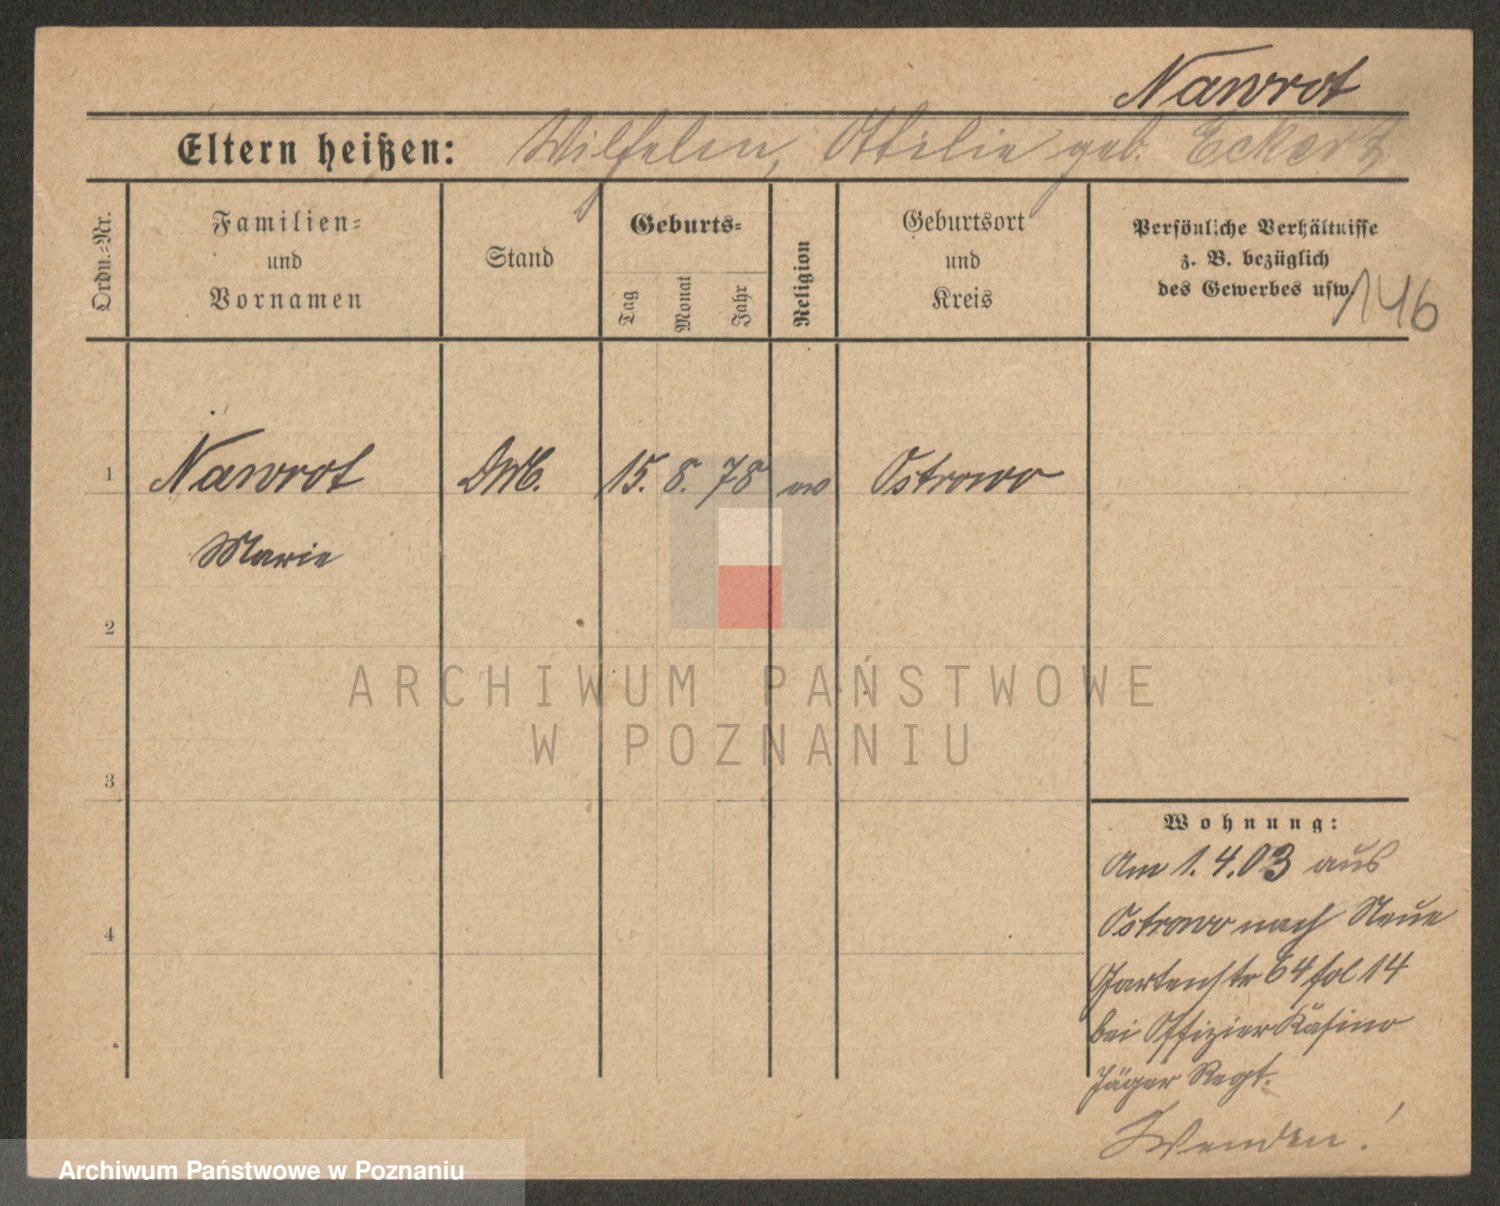 Nawrot
Eltern heißen: Wilhelm, Ottilie geb. Eckert
Ordn.-Nr.
Familien-
und
Vornamen
Stand
Geburts-
Tag
Monat
Jahr
Religion
Geburtsort
und
Kreis
Persönliche Verhältnisse
z. B. bezüglich
des Gewerbes usw.
146
1 Nawrot 15. 8. 78 ev Ostrowo
Marie
2
3
4
Wohnung:
Am 1.4.03 aus
Ostrowo nach Neue
Gartenstr 64 fol 14
bei Offizier Kasino
Jäger Regt.
Wenden!
ARCHIWUM PAŃSTWOWE
W POZNANIU
Archiwum Państwowe w Poznaniu